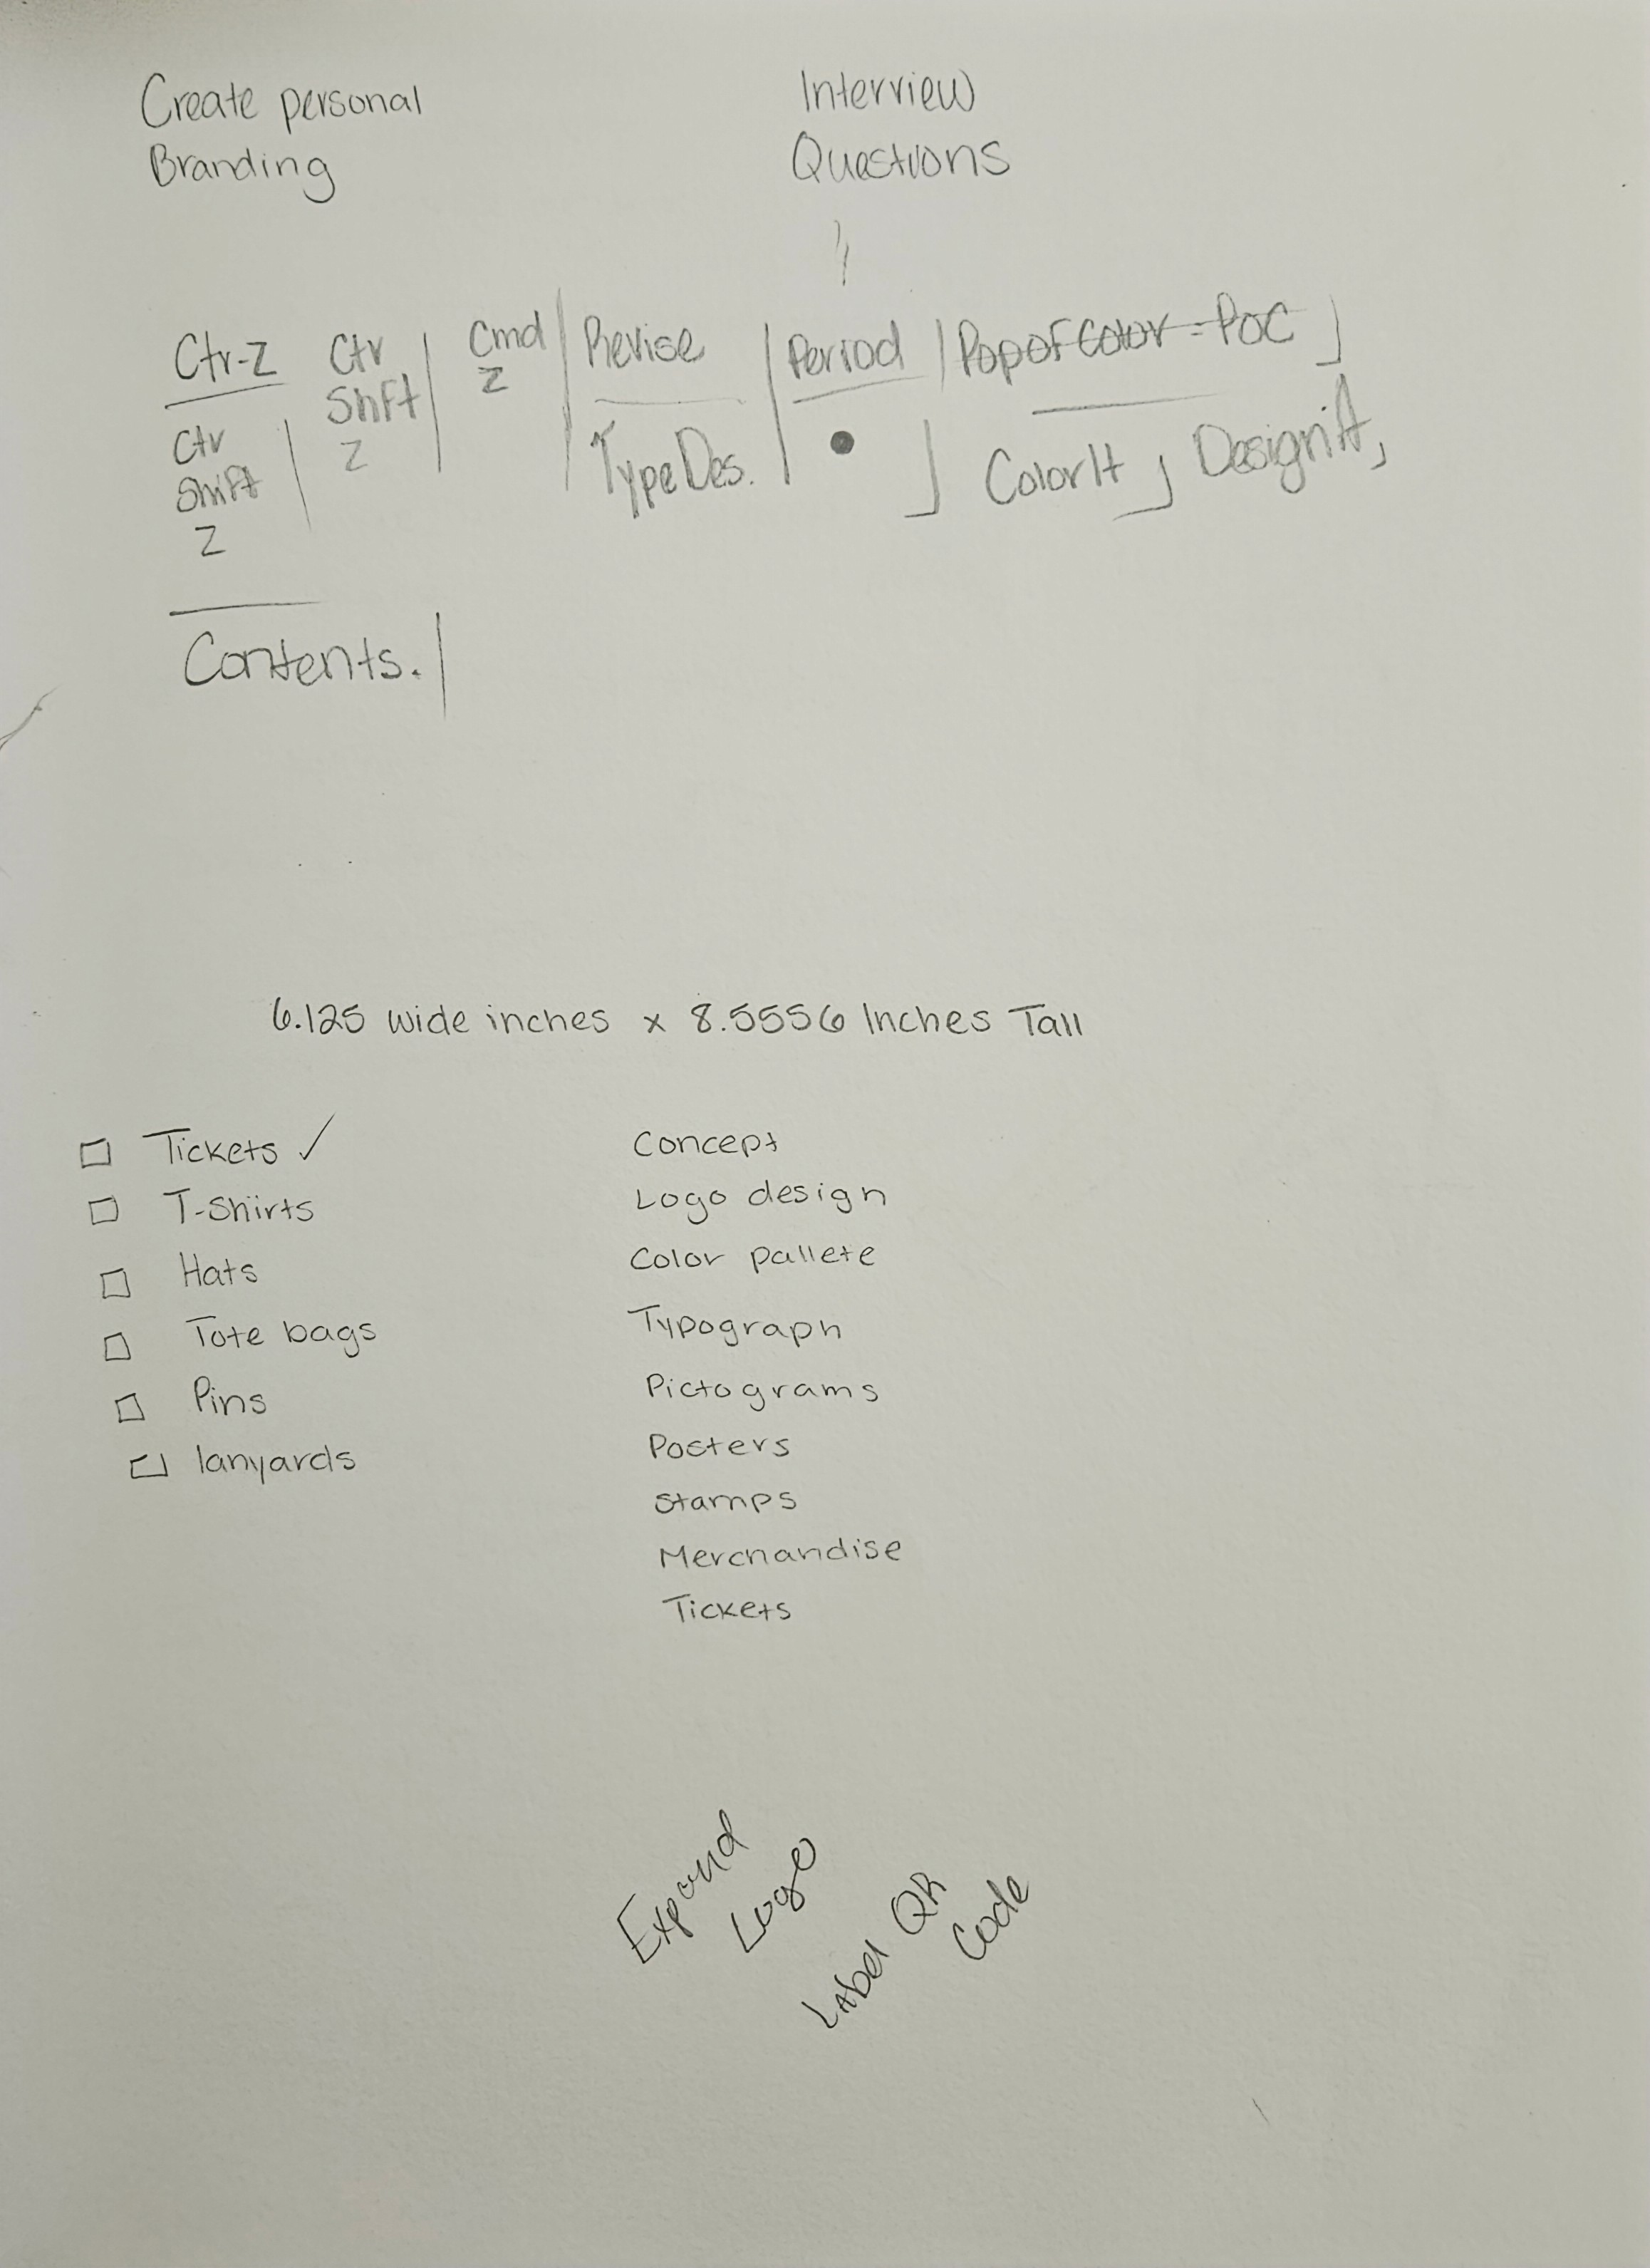 Create personal
Branding
Interview
Questions
Ctr-Z
Ctr
Shift
Z
Contents.
Ctr
Shft
Z
Cmd
Z
Revise
TypeDes.
Period
PopofColor = POC
ColorIt
DesignIt,
6.125 wide inches x 8.5556 Inches Tall
Tickets ✓
T-Shirts
Hats
Tote bags
Pins
lanyards
Concept
Logo design
Color pallete
Typograph
Pictograms
Posters
Stamps
Merchandise
Tickets
Expand
Logo
Label QR
Code